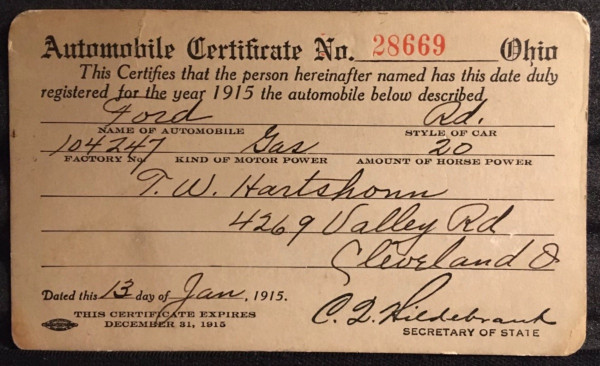 Automobile Certificate No. 28669 Ohio
This Certifies that the person hereinafter named has this date duly
registered for the year 1915 the automobile below described.
Ford Rd.
NAME OF AUTOMOBILE STYLE OF CAR
104247 Gas 20
FACTORY No. KIND OF MOTOR POWER AMOUNT OF HORSE POWER
T. W. Hartshorn
4269 Valley Rd
Cleveland O
Dated this 13 day of Jan, 1915.
THIS CERTIFICATE EXPIRES
DECEMBER 31, 1915
C. Q. Hildebrant
SECRETARY OF STATE